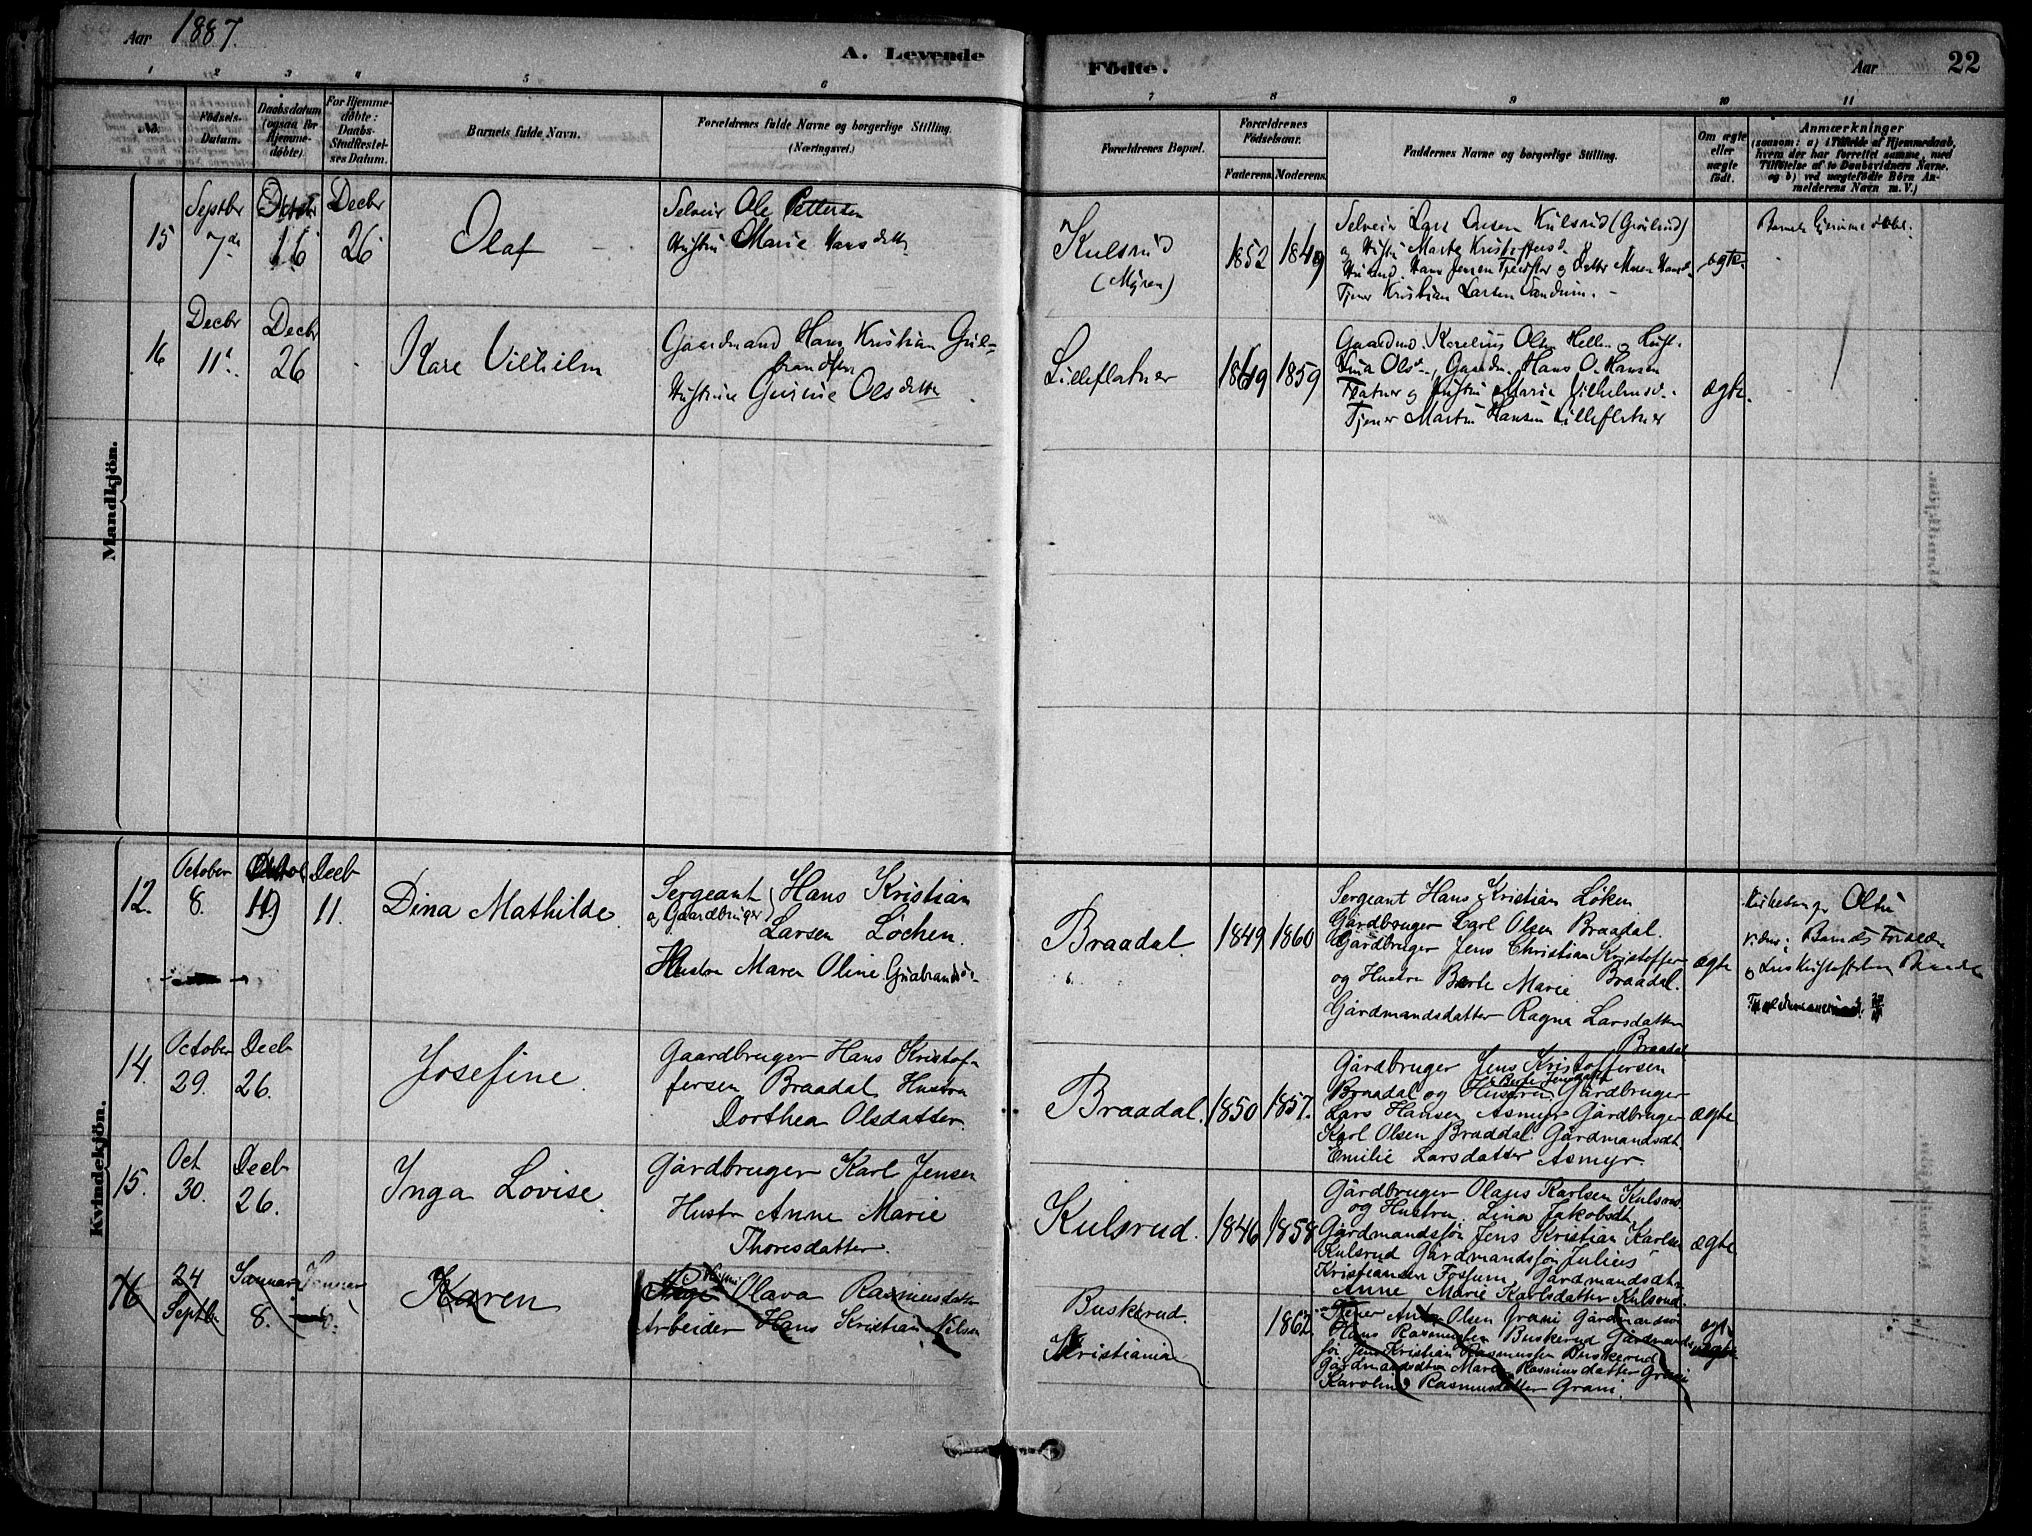 Aar 1887.
A. Levende
Födte.
Aar
22
1 2 3 4 5 6
7 8 9 10 11
No.
Födsels-
Datum.
Daabsdatum
(ogsaa for
Hjemme-
døbte)
For Hjemme-
døbte:
Daabs-
Stadfæstel-
ses Datum.
Barnets fulde Navn.
Forældrenes fulde Navne og borgerlige Stilling.
(Næringsvei.)
Forældrenes Bopæl.
Forældrenes
Födselsaar.
Faderens. Moderens.
Faddernes Navne og borgerlige Stilling.
Om ægte
eller
uægte
født.
Anmærkninger
(saasom: a) i Tilfælde af Hjemmedaab,
hvem der har forrettet samme, med
Tilföielse af to Daabsvidners Navne.
og b) ved uægtefödte Börn An-
melderens Navn m. V.)
Mandkjön.
15
Septbr
7de
Octobr
16
Decbr
26
Olaf
Selveier Ole Pettersen
Hustru Marie Hansdatter
Kulsrud
(Myren)
1852
1849
Selveier Lars Larsen Kulsrud
og Hustru Marte Kristoffersd.
Hans Jensen og Datter Maren
Tjener Kristian Larsen
ægte
Barnet hjemmedøbt.
16
Decbr
11te
Decbr
26
Kare Vilhelm
Gaardmand Hans Kristian Gul-
brandsen
Hustrue Gurine Olsdatter
Lilleflatner
1849
1859
Gaardmd. Karelius Olsen Hellen og Hust.
Lina Olsd., Gaardm. Hans O. Hansen
Flatner og Hustru Marie Vilhelmsd.
Tjener Martin Hansen Lilleflatner
ægte.
Kvindekjön.
12.
October
8.
19
Decb
11.
Dina Mathilde
Sergeant Hans Kristian
og Gaardbruger Larsen Löchen.
Hustru Maren Oline Gulbrandsd.
Braadal
1849
1860
Sergeant Hans Kristian Løken
Gårdbruger Carl Olsen Braadal.
Gårdbruger Jens Christian Kristoffer
og Hustru Berte Marie Braadal.
Gårdmandsdatter Ragna Larsdatter
Braadal
ægte
Kirkesanger Olsen
Barnets Foræld
14.
October
29.
Decb
26.
Josefine.
Gaardbruger Hans Kristof-
fersen Braadal Hustru
Dorthea Olsdatter.
Braadal.
1850
1857.
Gårdbruger Jens Kristoffersen
Braadal og Hustru Berte Jensdatt Gårdbruger
Lars Hansen Asmyr Gårdbruger
Karl Olsen Braadal. Gårdmandsdt.
Emilie Larsdatter Asmyr.
ægte
15.
Oct
30.
Decb
26.
Inga Lovise.
Gårdbruger Karl Jensen
Hustr Anne Marie
Thoresdatter.
Kulsrud.
1846
1858
Gårdbruger Olaus Karlsen Kulsrud
og Hustru Lina Jakobsdt.
Gårdmandssøn Jens Kristian Karlsen
Kulsrud Gårdmandssøn Julius
Kristiansen Fossum, Gårdmandsdt.
Anne Marie Karlsdatter Kulsrud.
ægte
16
24
Septbr.
Januar
8.
Januar
Karen
Olava Rasmusdatter
Arbeider Hans Kristian Nilsen
Buskerud.
Kristiania
1862.
Tjener Anton Olsen Grani Gårdmandssøn
Olaus Rasmussen Buskerud Gårdmands
søn Jens Kristian Rasmussen Buskerud
Gårdmandsdtr Maren Rasmusdatter Grani
Karoline Rasmusdatter Grani.